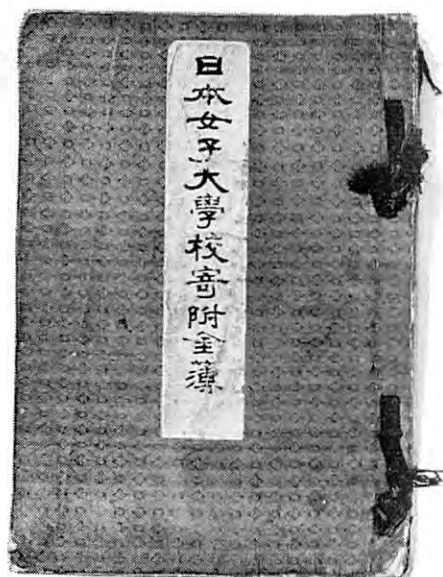 日本女子大學校寄附金簿